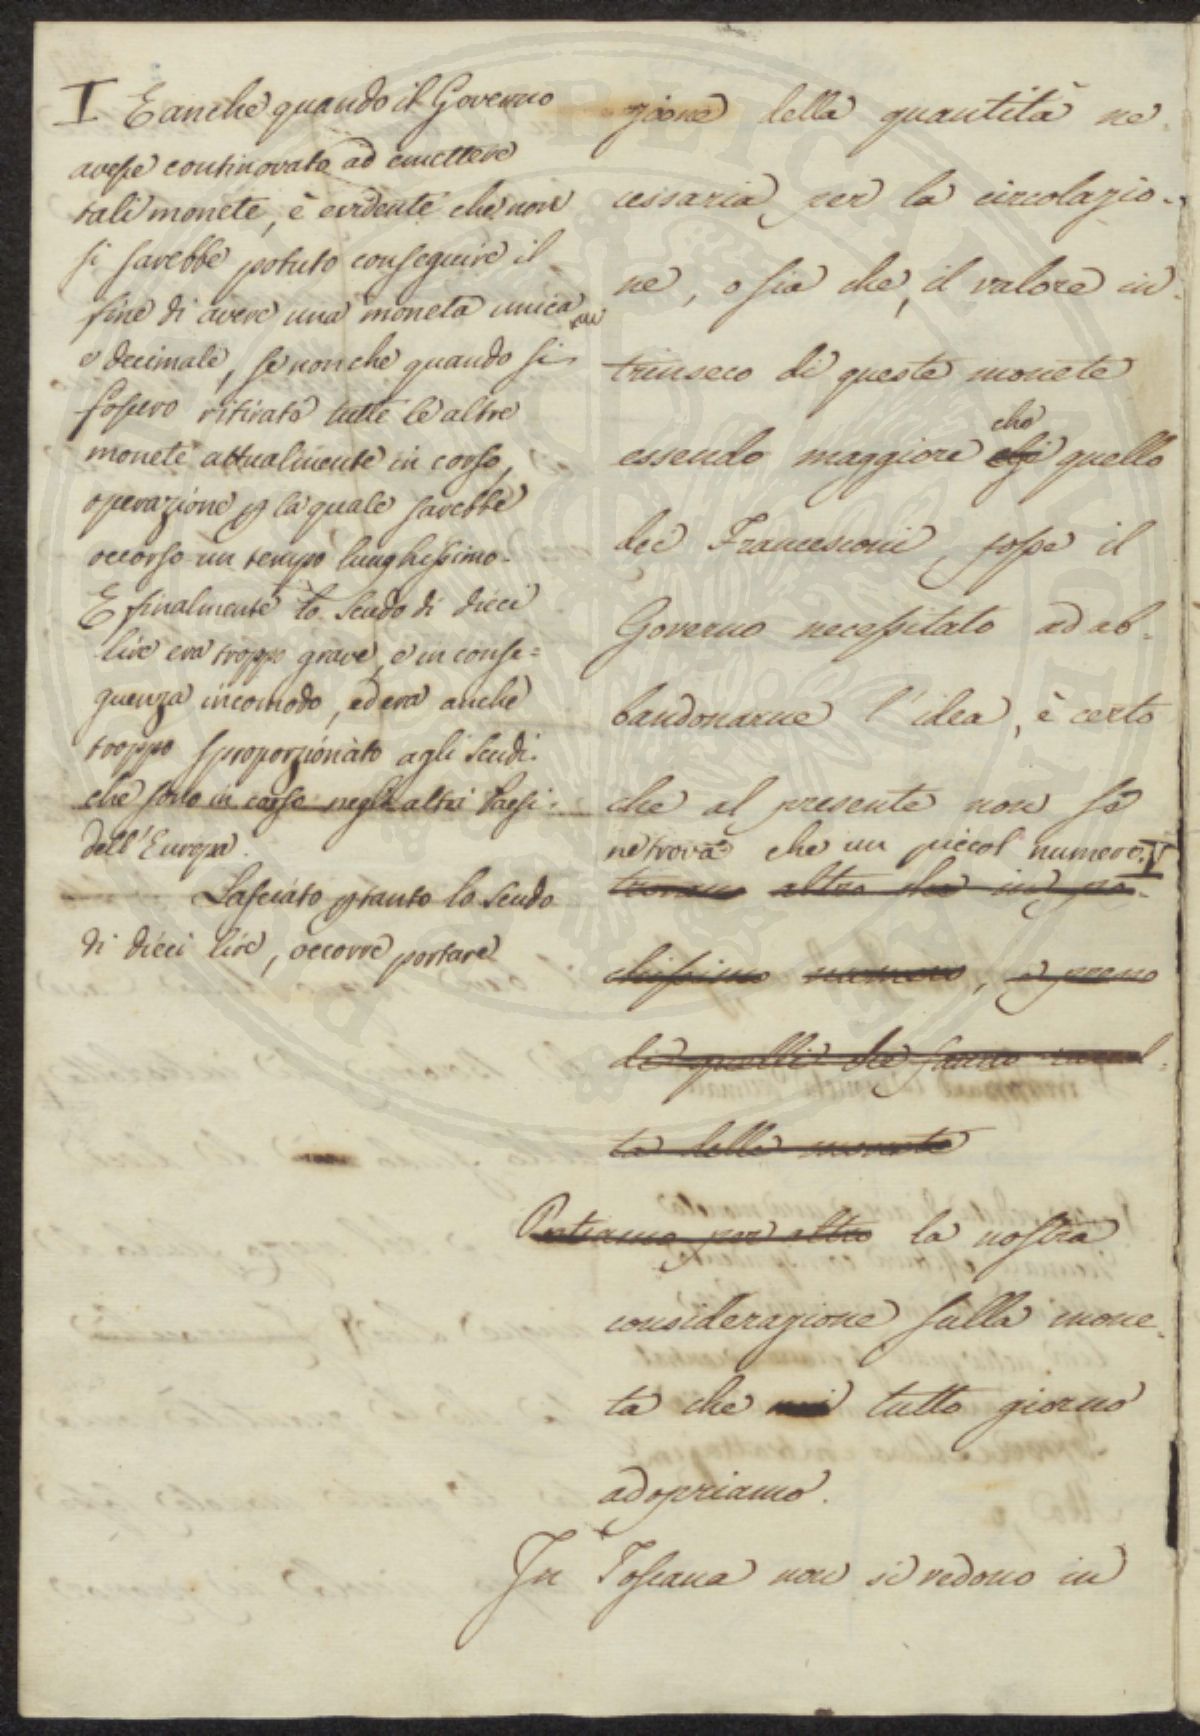 I E anche quando il Governo
avesse continovato ad emettere
tali monete, è evidente che non
si sarebbe potuto conseguire il
fine di avere una moneta unica
e decimale, se non che quando si
fossero ritirate tutte le altre
monete attualmente in corso,
operazione p la quale sarebbe
occorso un tempo lunghissimo.
E finalmente lo Scudo di dieci
lire era troppo grave, e in conse=
guenza incomodo, ed era anche
troppo sproporzionato agli Scudi
che sono in corso negli altri Paesi
dell'Europa.
Lasciato ptanto lo Scudo
di dieci lire, occorre portare
zione della quantità ne
cessaria per la circolazio-
ne, o sia che, il valore in
trinseco di queste monete
che
essendo maggiore quello
dei Francesconi, fosse il
Governo necessitato ad ab-
bandonarne l'idea, è certo
che al presente non se
ne trova che un piccol numero. I
trovano altro che in po-
chissimo numero, e presso
di quelli che fanno raccol-
ta delle monete
Portiamo per altro la nostra
considerazione sulla mone-
ta che noi tutto giorno
adopriamo.
In Toscana non si vedono in